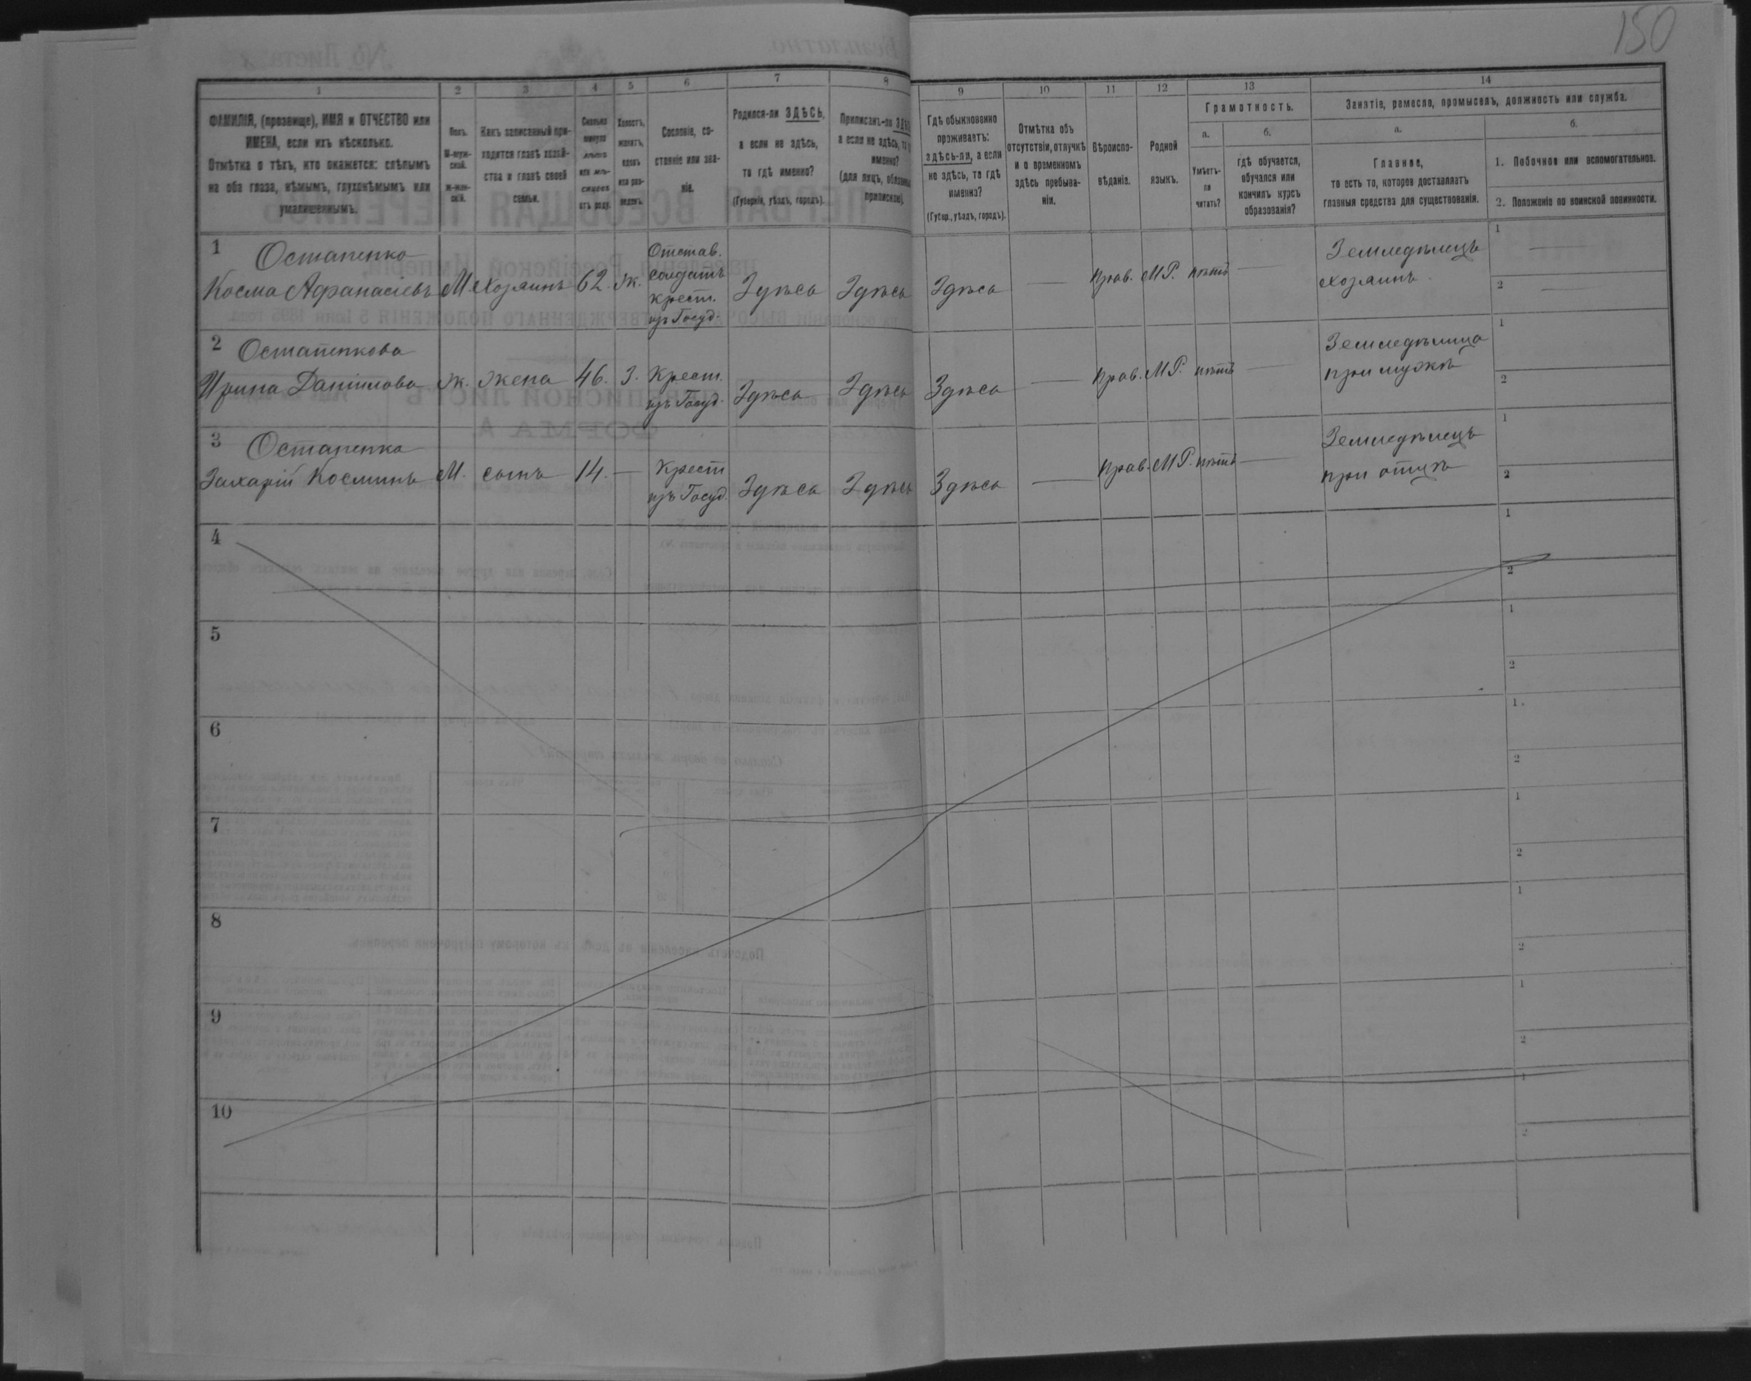 150
1
2
3
4
5
6
7
8
9
10
11
12
13
14
ФАМИЛІЯ, (прозвище), ИМЯ и ОТЧЕСТВО или
ИМЕНА, если ихъ нѣсколько.
Отмѣтка о тѣхъ, кто окажется: слѣпымъ
на оба глаза, нѣмымъ, глухонѣмымъ или
умалишеннымъ.
Полъ.
М-муж-
ской.
Ж-жен-
скій.
Какъ записанный при-
ходится главѣ хозяй-
ства и главѣ своей
семьи.
Сколько
минуло
лѣтъ
или мѣ-
сяцевъ
отъ роду.
Холостъ,
женатъ,
вдовъ
или раз-
веденъ.
Сословіе, со-
стояніе или зва-
ніе.
Родился-ли ЗДѢСЬ,
а если не здѣсь,
то гдѣ именно?
(Губернія, уѣздъ, городъ).
Приписанъ-ли
а если не здѣсь, то
именно?
(для лицъ,
Гдѣ обыкновенно
проживаетъ:
здѣсь-ли, а если
не здѣсь, то гдѣ
именно?
(Губер., уѣздъ, городъ).
Отмѣтка объ
отсутствіи, отлучкѣ
и о временномъ
здѣсь пребыва-
ніи.
Вѣроиспо-
вѣданіе.
Родной
языкъ.
Грамотность.
а.
Умѣетъ-
ли
читать?
б.
гдѣ обучается,
обучался или
кончилъ курсъ
образованія?
Занятіе, ремесло, промыселъ, должность или служба.
а.
Главное,
то есть то, которое доставляетъ
главныя средства для существованія.
б.
1. Побочное или вспомогательное.
2. Положеніе по воинской повинности.
1 Остапенко
Косма Афанасіевъ М хозяинъ 62. ж. Отстав. солдатъ крест. изъ Госуд. Здѣсь Здѣсь Здѣсь — Прав. М.Р. нѣтъ — Земледѣлецъ хозяинъ 1 — 2 —
2 Остапенкова
Ирина Данилова ж. жена 46. З. Крест. изъ Госуд. Здѣсь Здѣсь Здѣсь — Прав. М.Р. нѣтъ — Земледѣлица при мужѣ 1 2
3 Остапенко
Захарій Косминъ М. сынъ 14. — Крест изъ Госуд. Здѣсь Здѣсь Здѣсь — Прав. М.Р. нѣтъ — Земледѣлецъ при отцѣ 1 2
4 1 2
5 1 2
6 1 2
7 1 2
8 1 2
9 1 2
10 1 2